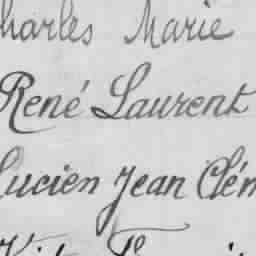 harles Marie
René Laurent
Lucien Jean Clém